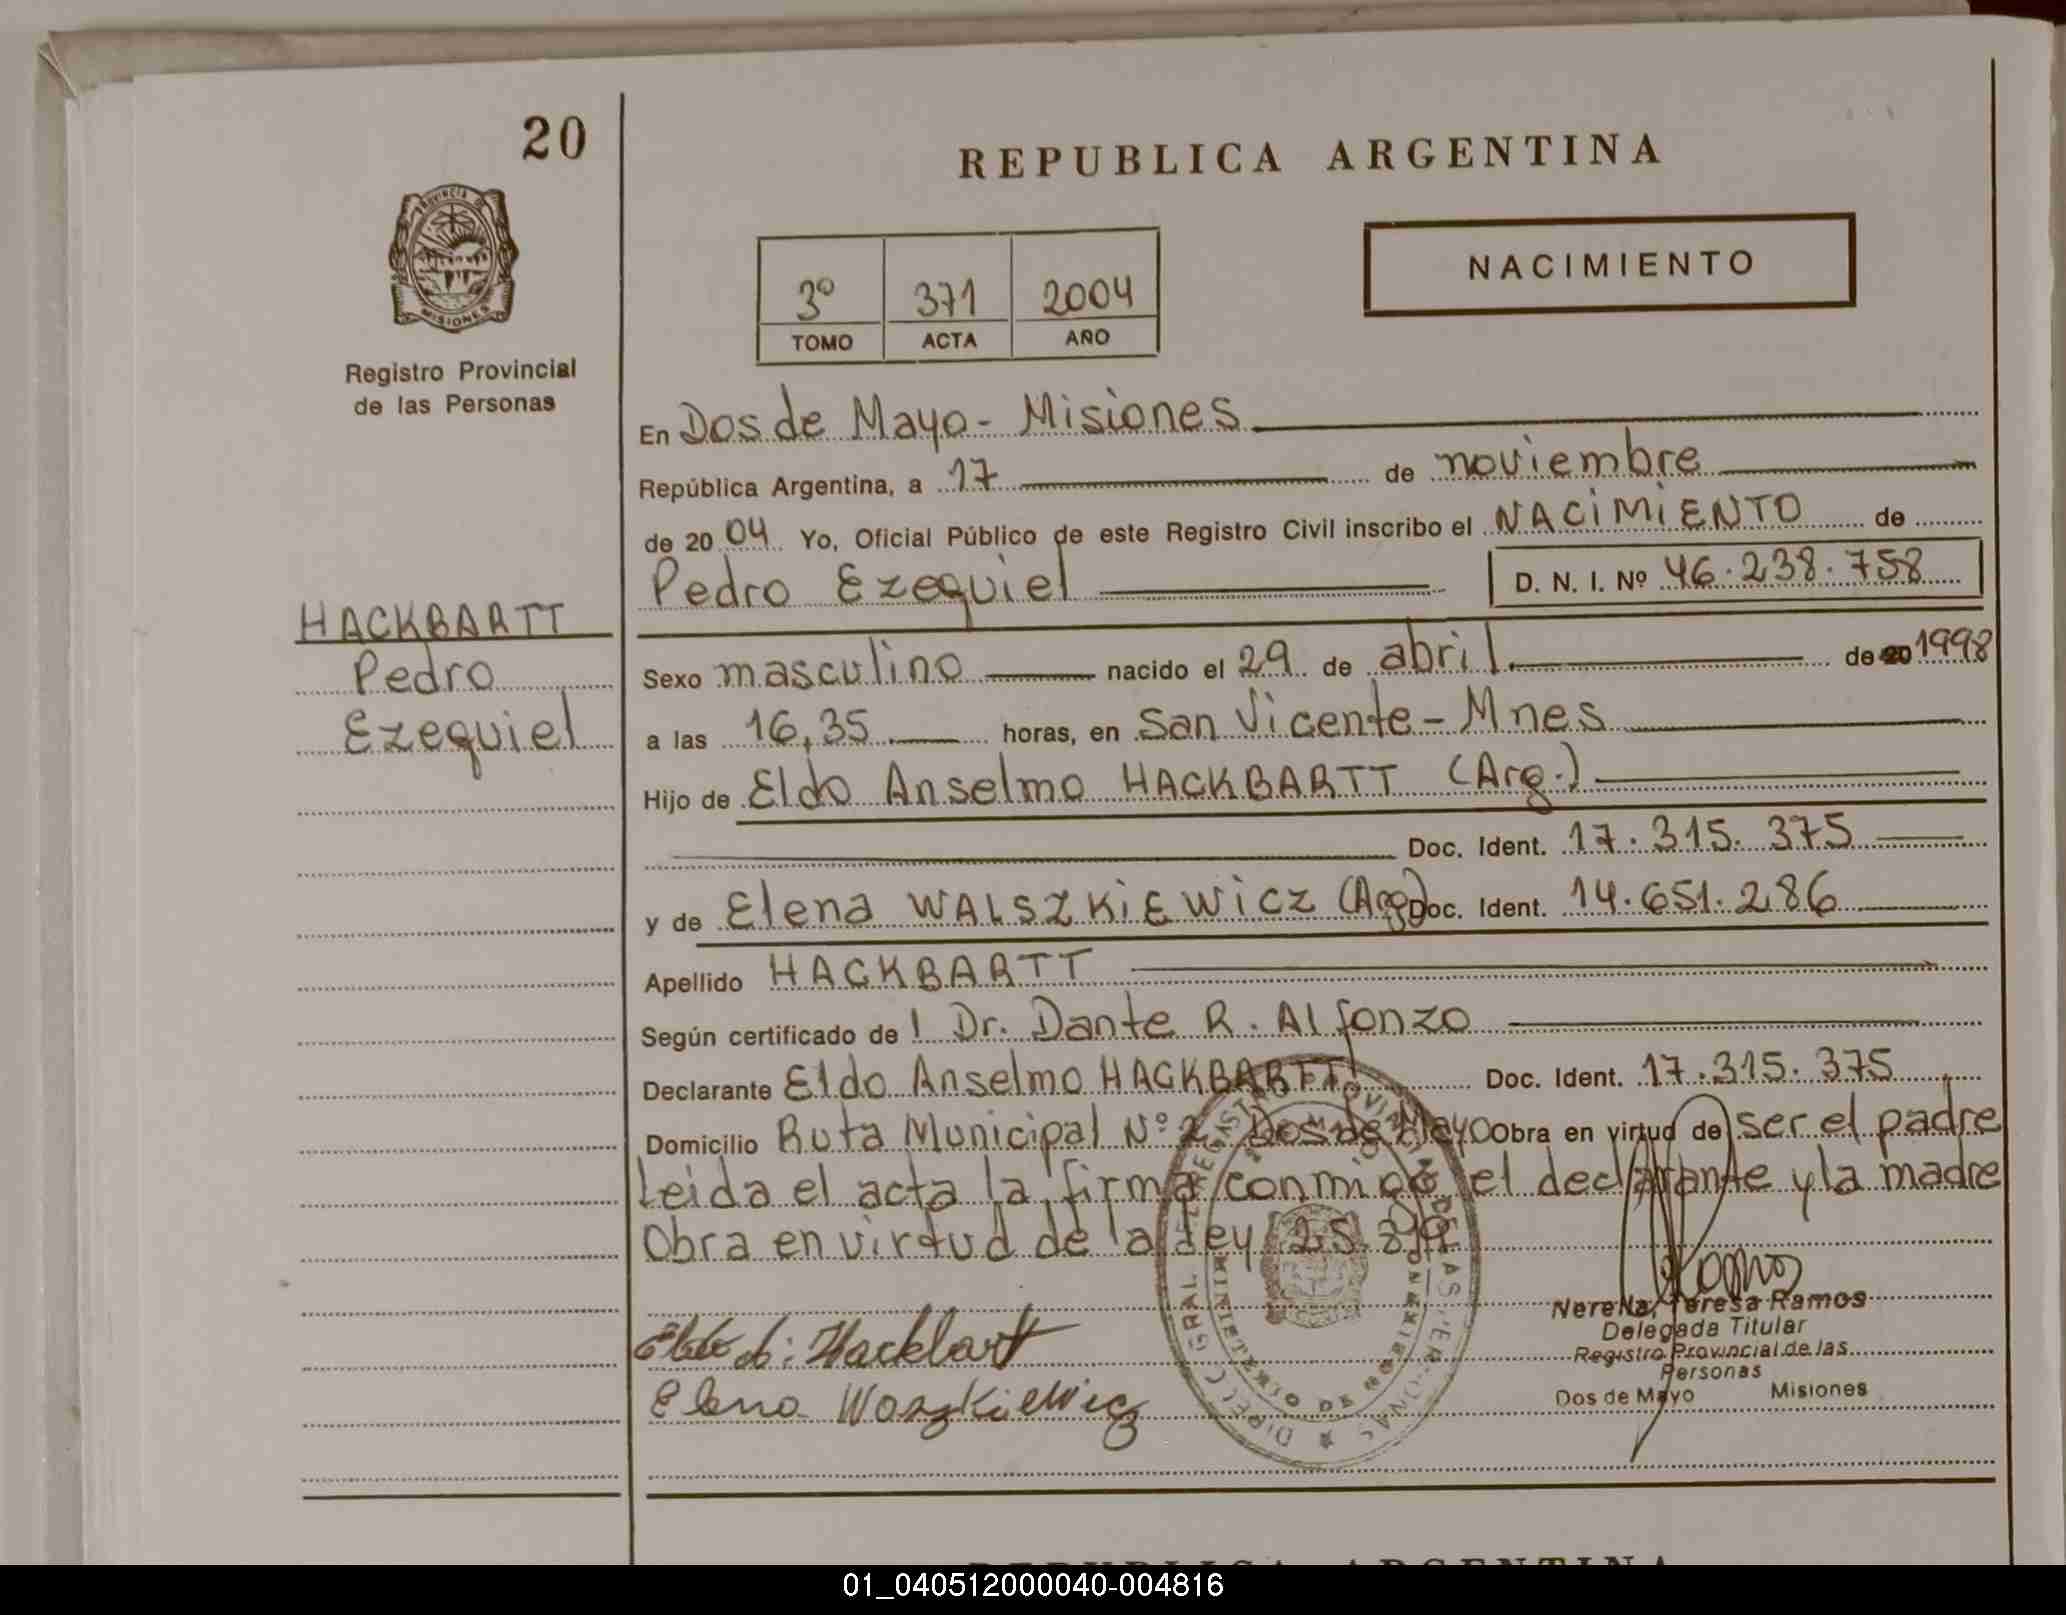 20
REPUBLICA ARGENTINA
PROVINCIA DE
MISIONES
Registro Provincial
de las Personas
NACIMIENTO
3º 371 2004
TOMO ACTA AÑO
En Dos de Mayo - Misiones
República Argentina, a 17 de noviembre
de 2004 Yo, Oficial Público de este Registro Civil inscribo el NACIMIENTO de
Pedro Ezequiel D. N. I. Nº 46.238.758
HACKBARTT
Pedro
Ezequiel
Sexo masculino nacido el 29 de abril de 20 1998
a las 16,35 horas, en San Vicente - Mnes
Hijo de Eldo Anselmo HACKBARTT (Arg.)
Doc. Ident. 17.315.375
y de Elena WALSZKIEWICZ (Arg) Doc. Ident. 14.651.286
Apellido HACKBARTT
Según certificado de l Dr. Dante R. Alfonzo
Declarante Eldo Anselmo HACKBARTT Doc. Ident. 17.315.375
Domicilio Ruta Municipal Nº 2 Dos de Mayo Obra en virtud de ser el padre
Leida el acta la firma conmigo el declarante y la madre
Obra en virtud de la Ley 25.819
Nerella, Teresa Ramos
Delegada Titular
Registro Provincial de las
Personas
Dos de Mayo Misiones
Elena Woszkiewicz
REPUBLICA ARGENTINA
01_040512000040-004816